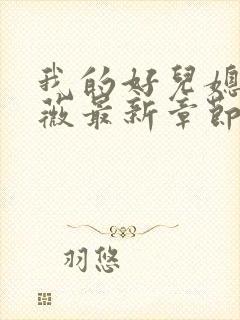 我的好兒媳
薇最新章節
羽悠